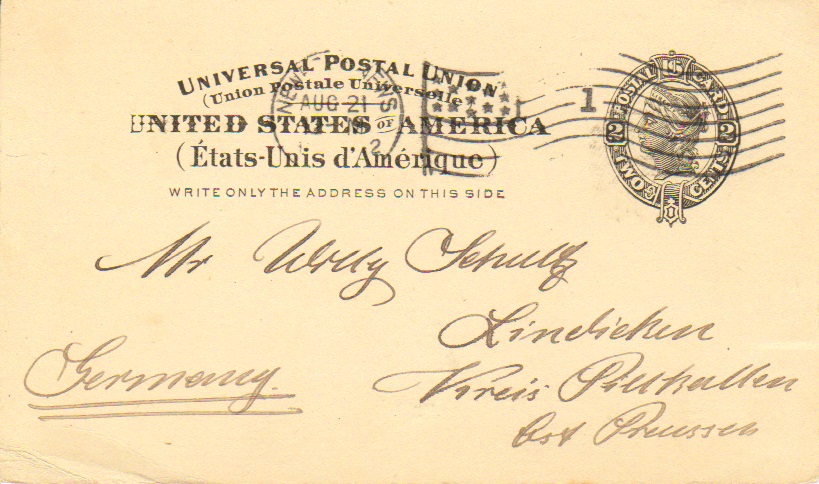 UNIVERSAL POSTAL UNION
(Union Postale Universelle)
UNITED STATES OF AMERICA
(États-Unis d'Amérique)
WRITE ONLY THE ADDRESS ON THIS SIDE
AUG 21
1
POSTAL CARD
2 2
Mr Willy Schultz
Lindicken
Germany.
Kreis Pillkallen
Ost Preussen